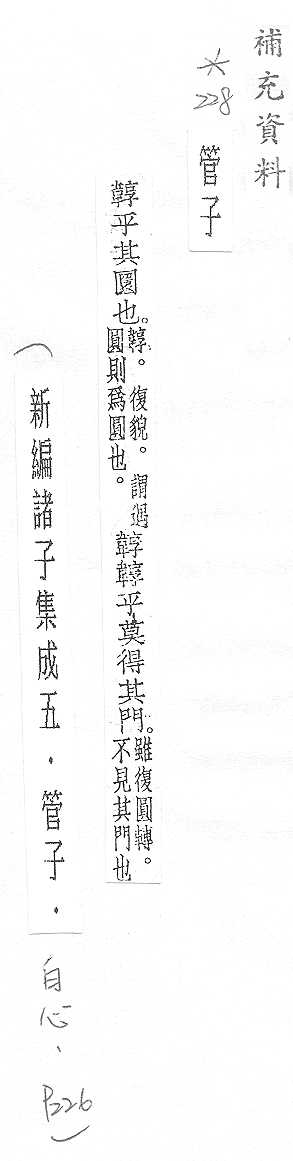 補充資料
* 228
管子
韕乎其圜也。韕。復貌。謂遇圓則爲圓也。韕韕乎莫得其門。雖復圓轉。不見其門也
(新編諸子集成五.管子.白心、P226)